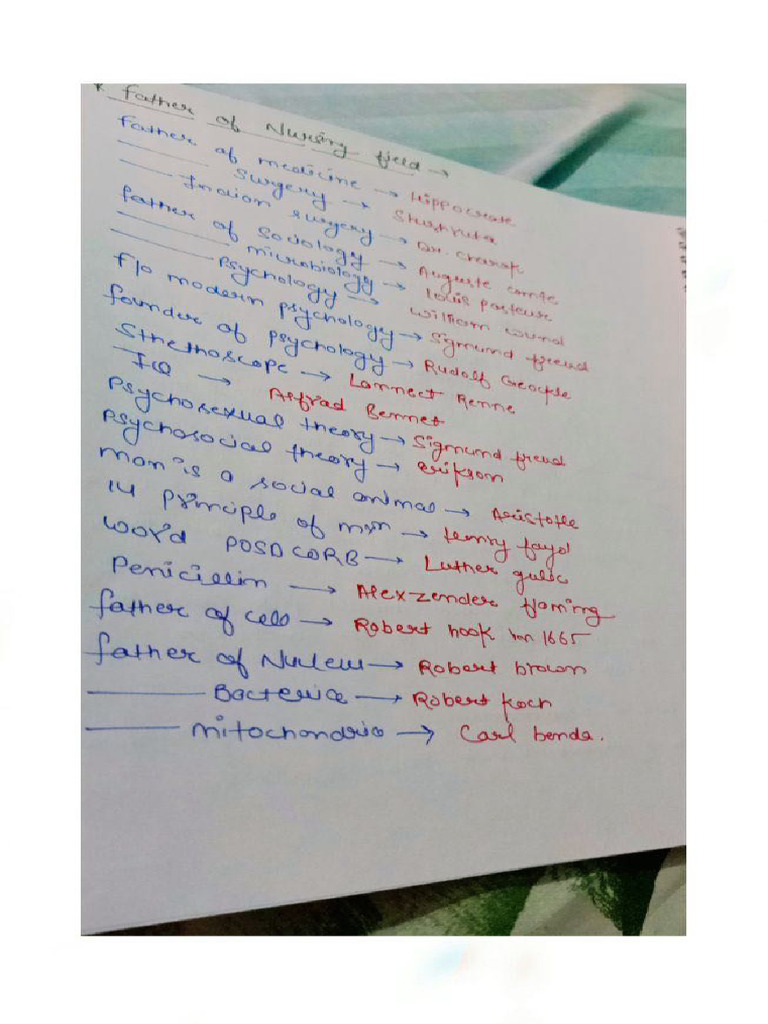 * Father of Nursing field →
Father of medicine → Hippocrate
——— Surgery → Shushruta
—— Indian surgery → Dr. charak
father of Sociology → Auguste comte
——— microbiology → louis pasteur
——— Psychology → William wund
F/o modern psychology → Sigmund freud
founder of psychology → Rudolf
Sthethoscope → Lannect Renne
IQ → Alfrad Bennet
Psychosexual theory → Sigmund freud
Psychosocial theory → erikson
man is a social animal → Aristotle
14 principle of → Henry fayol
word POSDCORB → Luther gulic
Penicillin → Alexzender flaming
father of cell → Robert hook 1665
father of Nucleus → Robert brown
——— Bacteria → Robert koch
——— mitochondria → Carl benda.